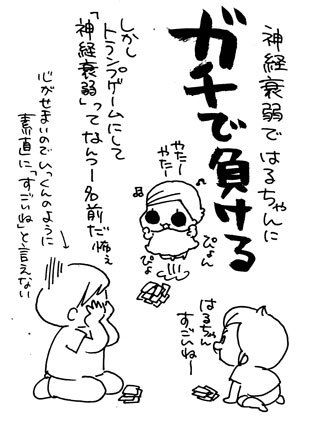 神経衰弱で はるちゃんに
ガチで負ける
しかし
トランプゲームにして
「神経衰弱」ってなんつー名前だ怖ぇ
やたー
やたー
ぴょん
ぴょ
心がせまいのでいっくんのように
素直に「すごいね」と言えない
はるちゃん
すごいねー